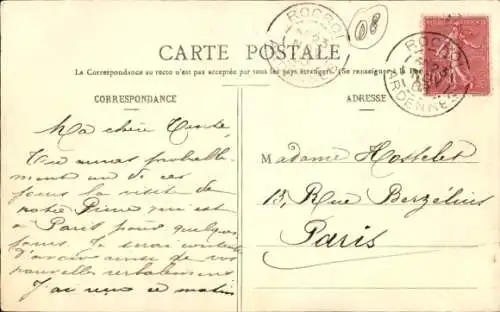 CARTE POSTALE
La Correspondance au recto n'est pas acceptée par tous les pays étrangers. (Se renseigner à la
CORRESPONDANCE
ADRESSE
ROCROI
ROCROI
ARDENNES
08
Ma chère Tante,
Tu auras probable-
ment un de ces
jours la visite de
notre Pierre qui est
à Paris pour quelques
jours. Je serai contente
d'avoir ainsi de vos
nouvelles verbalement
J'ai reçu ce matin
Madame Hostelet
13, Rue Berzélius
Paris